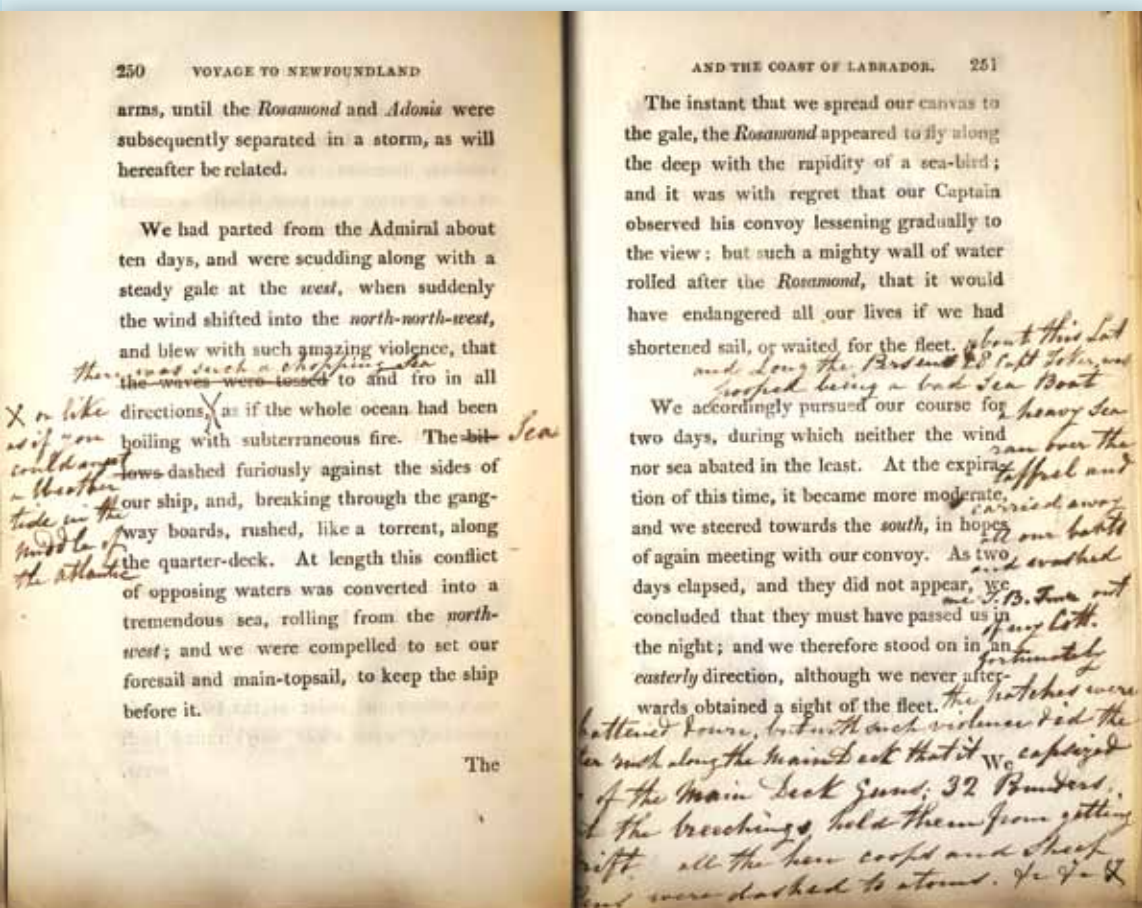 250 VOYAGE TO NEWFOUNDLAND
arms, until the Rosamond and Adonis were
subsequently separated in a storm, as will
hereafter be related.
We had parted from the Admiral about
ten days, and were scudding along with a
steady gale at the west, when suddenly
the wind shifted into the north-north-west,
and blew with such amazing violence, that
there was such a chopping sea
the waves were tossed to and fro in all
directions, X as if the whole ocean had been
boiling with subterranean fire. The bil- Sea
lows dashed furiously against the sides of
our ship, and, breaking through the gang-
way boards, rushed, like a torrent, along
the quarter-deck. At length this conflict
of opposing waters was converted into a
tremendous sea, rolling from the north-
west; and we were compelled to set our
foresail and main-topsail, to keep the ship
before it.
The
X or like
as if you
could
a weather
tide in the
middle of
the atlantic
AND THE COAST OF LABRADOR. 251
The instant that we spread our canvas to
the gale, the Rosamond appeared to fly along
the deep with the rapidity of a sea-bird;
and it was with regret that our Captain
observed his convoy lessening gradually to
the view: but such a mighty wall of water
rolled after the Rosamond, that it would
have endangered all our lives if we had
shortened sail, or waited for the fleet.
We accordingly pursued our course for
two days, during which neither the wind
nor sea abated in the least. At the expira-
tion of this time, it became more moderate,
and we steered towards the south, in hopes
of again meeting with our convoy. As two
days elapsed, and they did not appear, we
concluded that they must have passed us in
the night; and we therefore stood on in an
easterly direction, although we never after-
wards obtained a sight of the fleet.
We
about this Lat
and Long the 28 Capt was
pooped being a bad Sea Boat
a heavy Sea
ran over the
taffrel and
carried away
all our boats
and washed
me J.B. out
of my Cott.
fortunately
the hatches were
battened down, but with such violence did the
rush along the Main Deck that it capsized
of the Main Deck Guns, 32 Pounders,
the breechings held them from getting
all the hen coops and Sheep
were dashed to atoms. &c &c &c